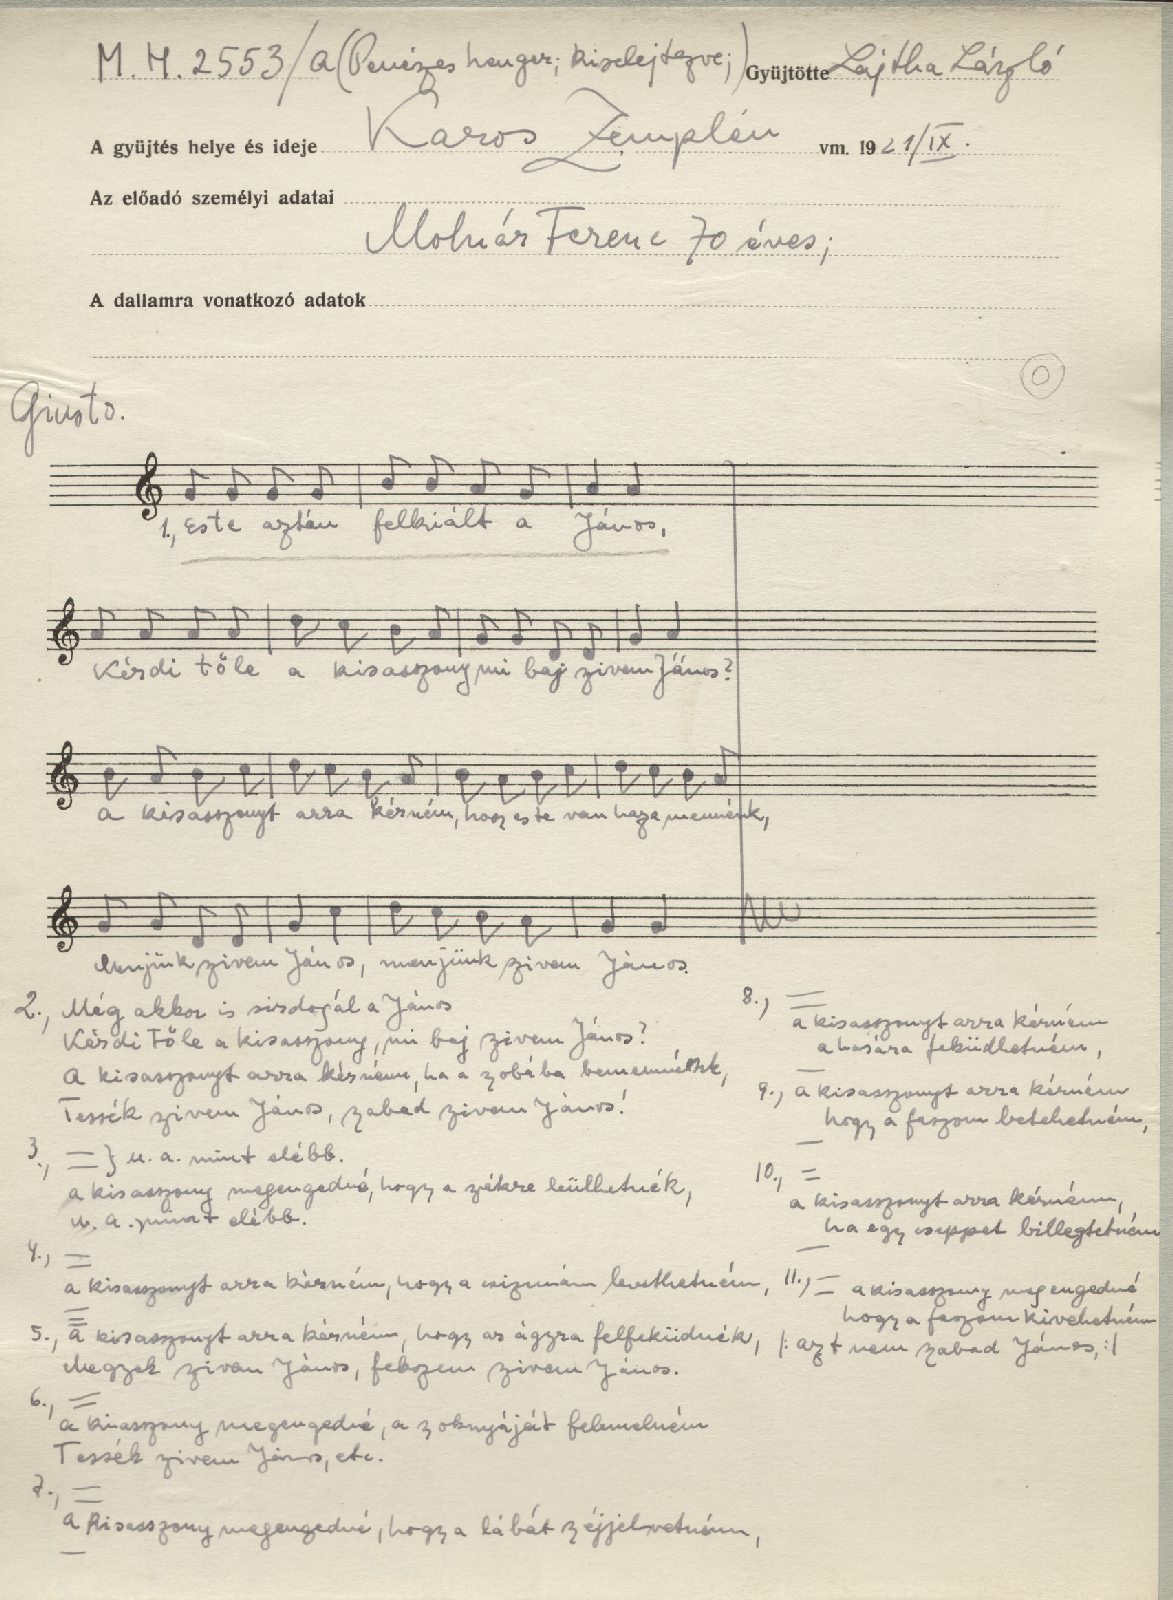 M. H. 2553/a (Penészes henger; kiselejtezve;) Gyüjtötte Lajtha László
A gyüjtés helye és ideje Karos Zemplén vm. 1921/IX.
Az előadó személyi adatai
Molnár Ferenc 70 éves;
A dallamra vonatkozó adatok
Giusto.
1., Este aztán felkiált a János,
Kérdi tőle a kisasszony, mi baj zivem János?
a kisasszonyt arra kérném, hogy este van haza mennénk,
Menjünk zivem János, menjünk zivem János.
2., Még akkor is sirdogál a János
Kérdi tőle a kisasszony, mi baj zivem János?
A kisasszonyt arra kérném, ha a zobába bemennénk,
Tessék zivem János, zabad zivem János!
3., = } u. a. mint elébb.
a kisasszony megengedné, hogy a zékre leülhetnék,
u. a. mint elébb.
4., =
a kisasszonyt arra kérném, hogy a csizmám levethetném,
5., a kisasszonyt arra kérném, hogy az ágyra felfeküdnék,
Megyek zivem János, fekszem zivem János.
6., =
a kisasszony megengedné, a zoknyáját felemelném
Tessék zivem János, etc.
7., =
a kisasszony megengedné, hogy a lábát zéjjelvetném,
8., =
a kisasszonyt arra kérném
a hasára feküdhetném,
9., a kisasszonyt arra kérném
hogy a faszom betehetném,
10., =
a kisasszonyt arra kérném,
ha egy cseppet billegtetném
11., = a kisasszony megengedné
hogy a faszom kivehetném
|: azt nem zabad János, :|